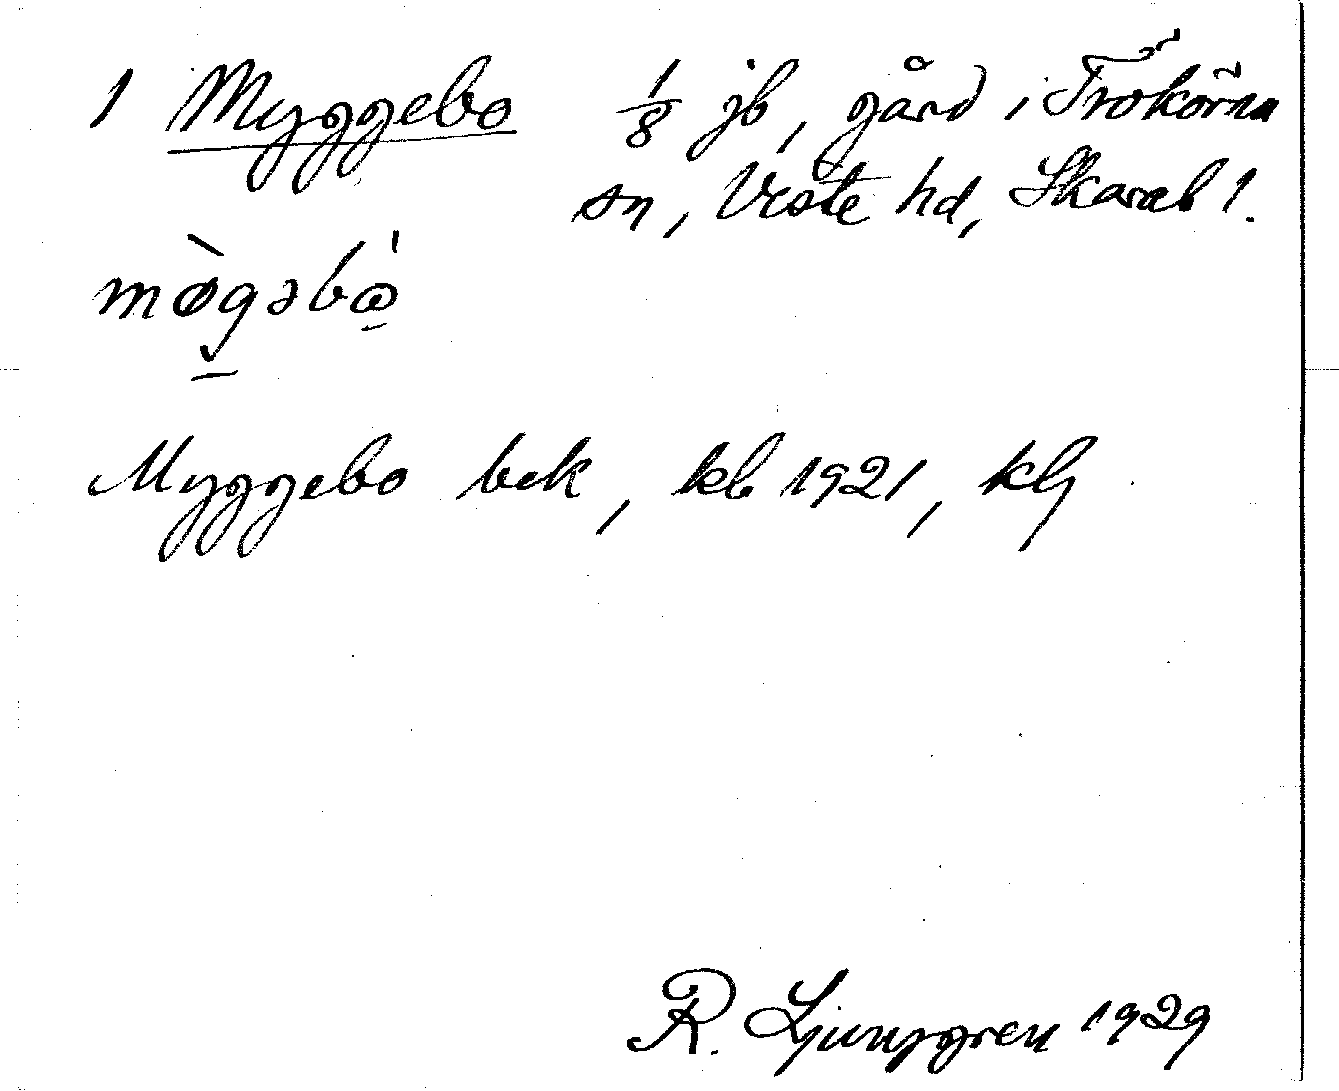 1 Myggebo 1/8 jb, gård i Trökörna
sn, Viste hd, Skarab l.
mø̀gəbω̲̍
Myggebo bek, kb 1921, klj
R. Ljunggren 1929